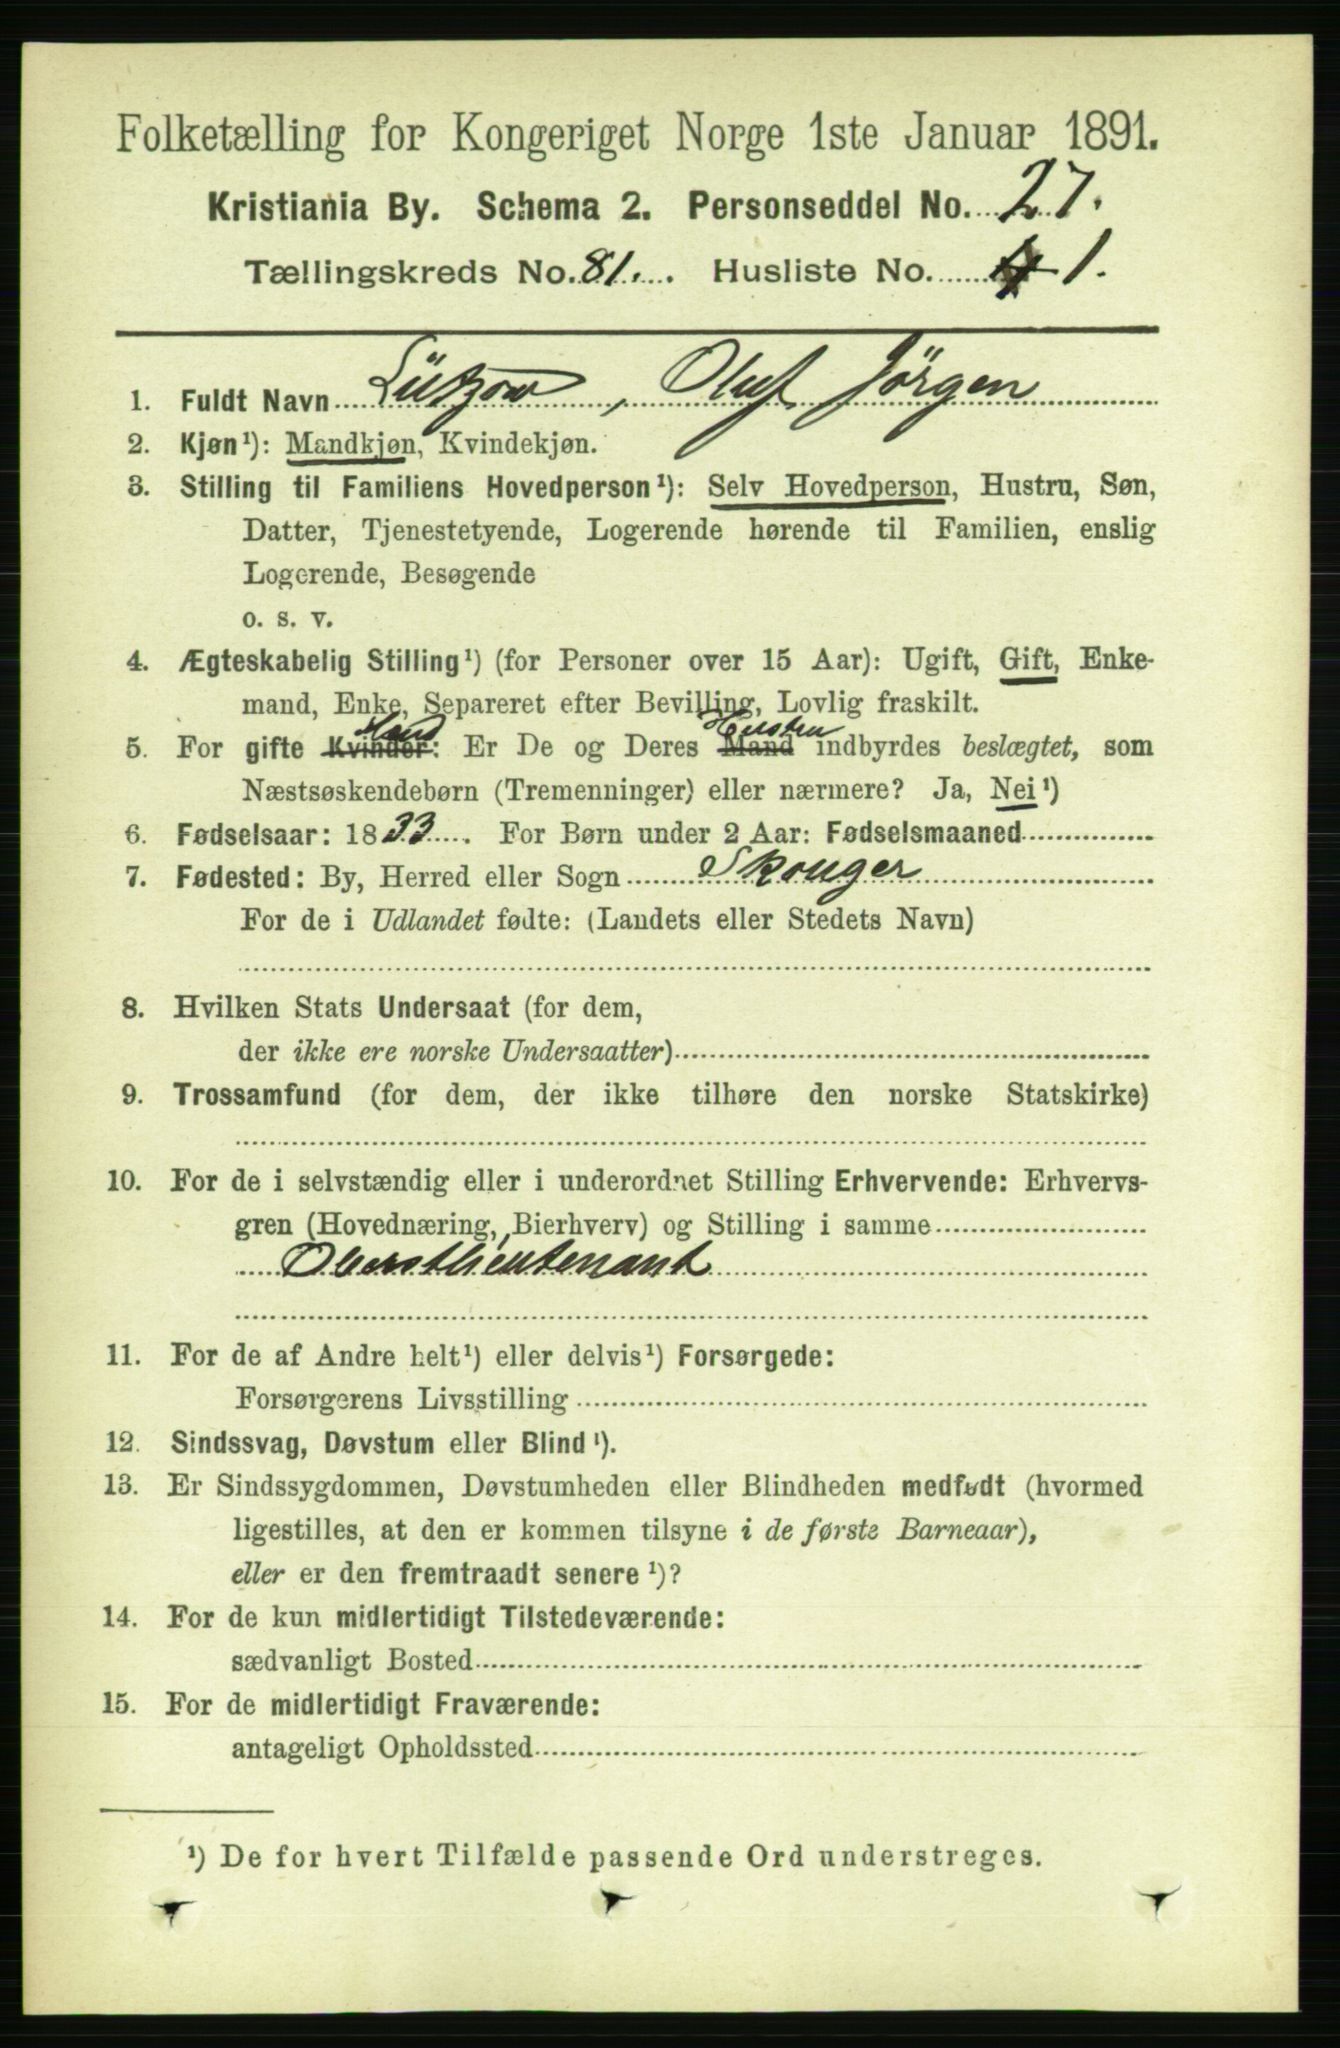 Folketælling for Kongeriget Norge 1ste Januar 1891.
Kristiania By. Schema 2. Personseddel No. 27.
Tællingskreds No. 81. Husliste No. 4 1.
1. Fuldt Navn Lützow, Oluf Jörgen
2. Kjøn¹): Mandkjøn, Kvindekjøn.
3. Stilling til Familiens Hovedperson¹): Selv Hovedperson, Hustru, Søn,
Datter, Tjenestetyende, Logerende hørende til Familien, enslig
Logerende, Besøgende
o. s. v.
4. Ægteskabelig Stilling¹) (for Personer over 15 Aar): Ugift, Gift, Enke-
mand, Enke, Separeret efter Bevilling, Lovlig fraskilt.
Mænd Hustru
5. For gifte Kvinder: Er De og Deres Mand indbyrdes beslægtet, som
Næstsøskendebørn (Tremenninger) eller nærmere? Ja, Nei¹)
6. Fødselsaar: 1833. For Børn under 2 Aar: Fødselsmaaned
7. Fødested: By, Herred eller Sogn Skouger
For de i Udlandet fødte: (Landets eller Stedets Navn)
8. Hvilken Stats Undersaat (for dem,
der ikke ere norske Undersaatter)
9. Trossamfund (for dem, der ikke tilhøre den norske Statskirke)
10. For de i selvstændig eller i underordnet Stilling Erhvervende: Erhvervs-
gren (Hovednæring, Bierhverv) og Stilling i samme
Oberstlieutenant
11. For de af Andre helt¹) eller delvis¹) Forsørgede:
Forsørgerens Livsstilling
12. Sindssvag, Døvstum eller Blind¹).
13. Er Sindssygdommen, Døvstumheden eller Blindheden medfødt (hvormed
ligestilles, at den er kommen tilsyne i de første Barneaar),
eller er den fremtraadt senere¹)?
14. For de kun midlertidigt Tilstedeværende:
sædvanligt Bosted
15. For de midlertidigt Fraværende:
antageligt Opholdssted
¹) De for hvert Tilfælde passende Ord understreges.